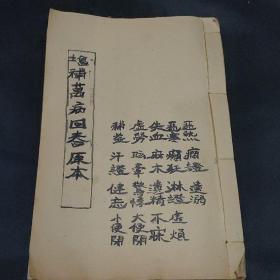 惡熱 癇證 遺溺
惡寒 癲狂 淋證 虛煩
失血 麻木 遺精 不寐
虛勞 眩暈 驚悸 大便閉
補益 汗證 健忘 小便閉
增補萬病回春原本